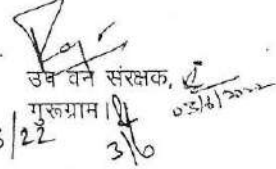 उप वन संरक्षक,
गुरूग्राम।
03/6/2022
/22
3/6